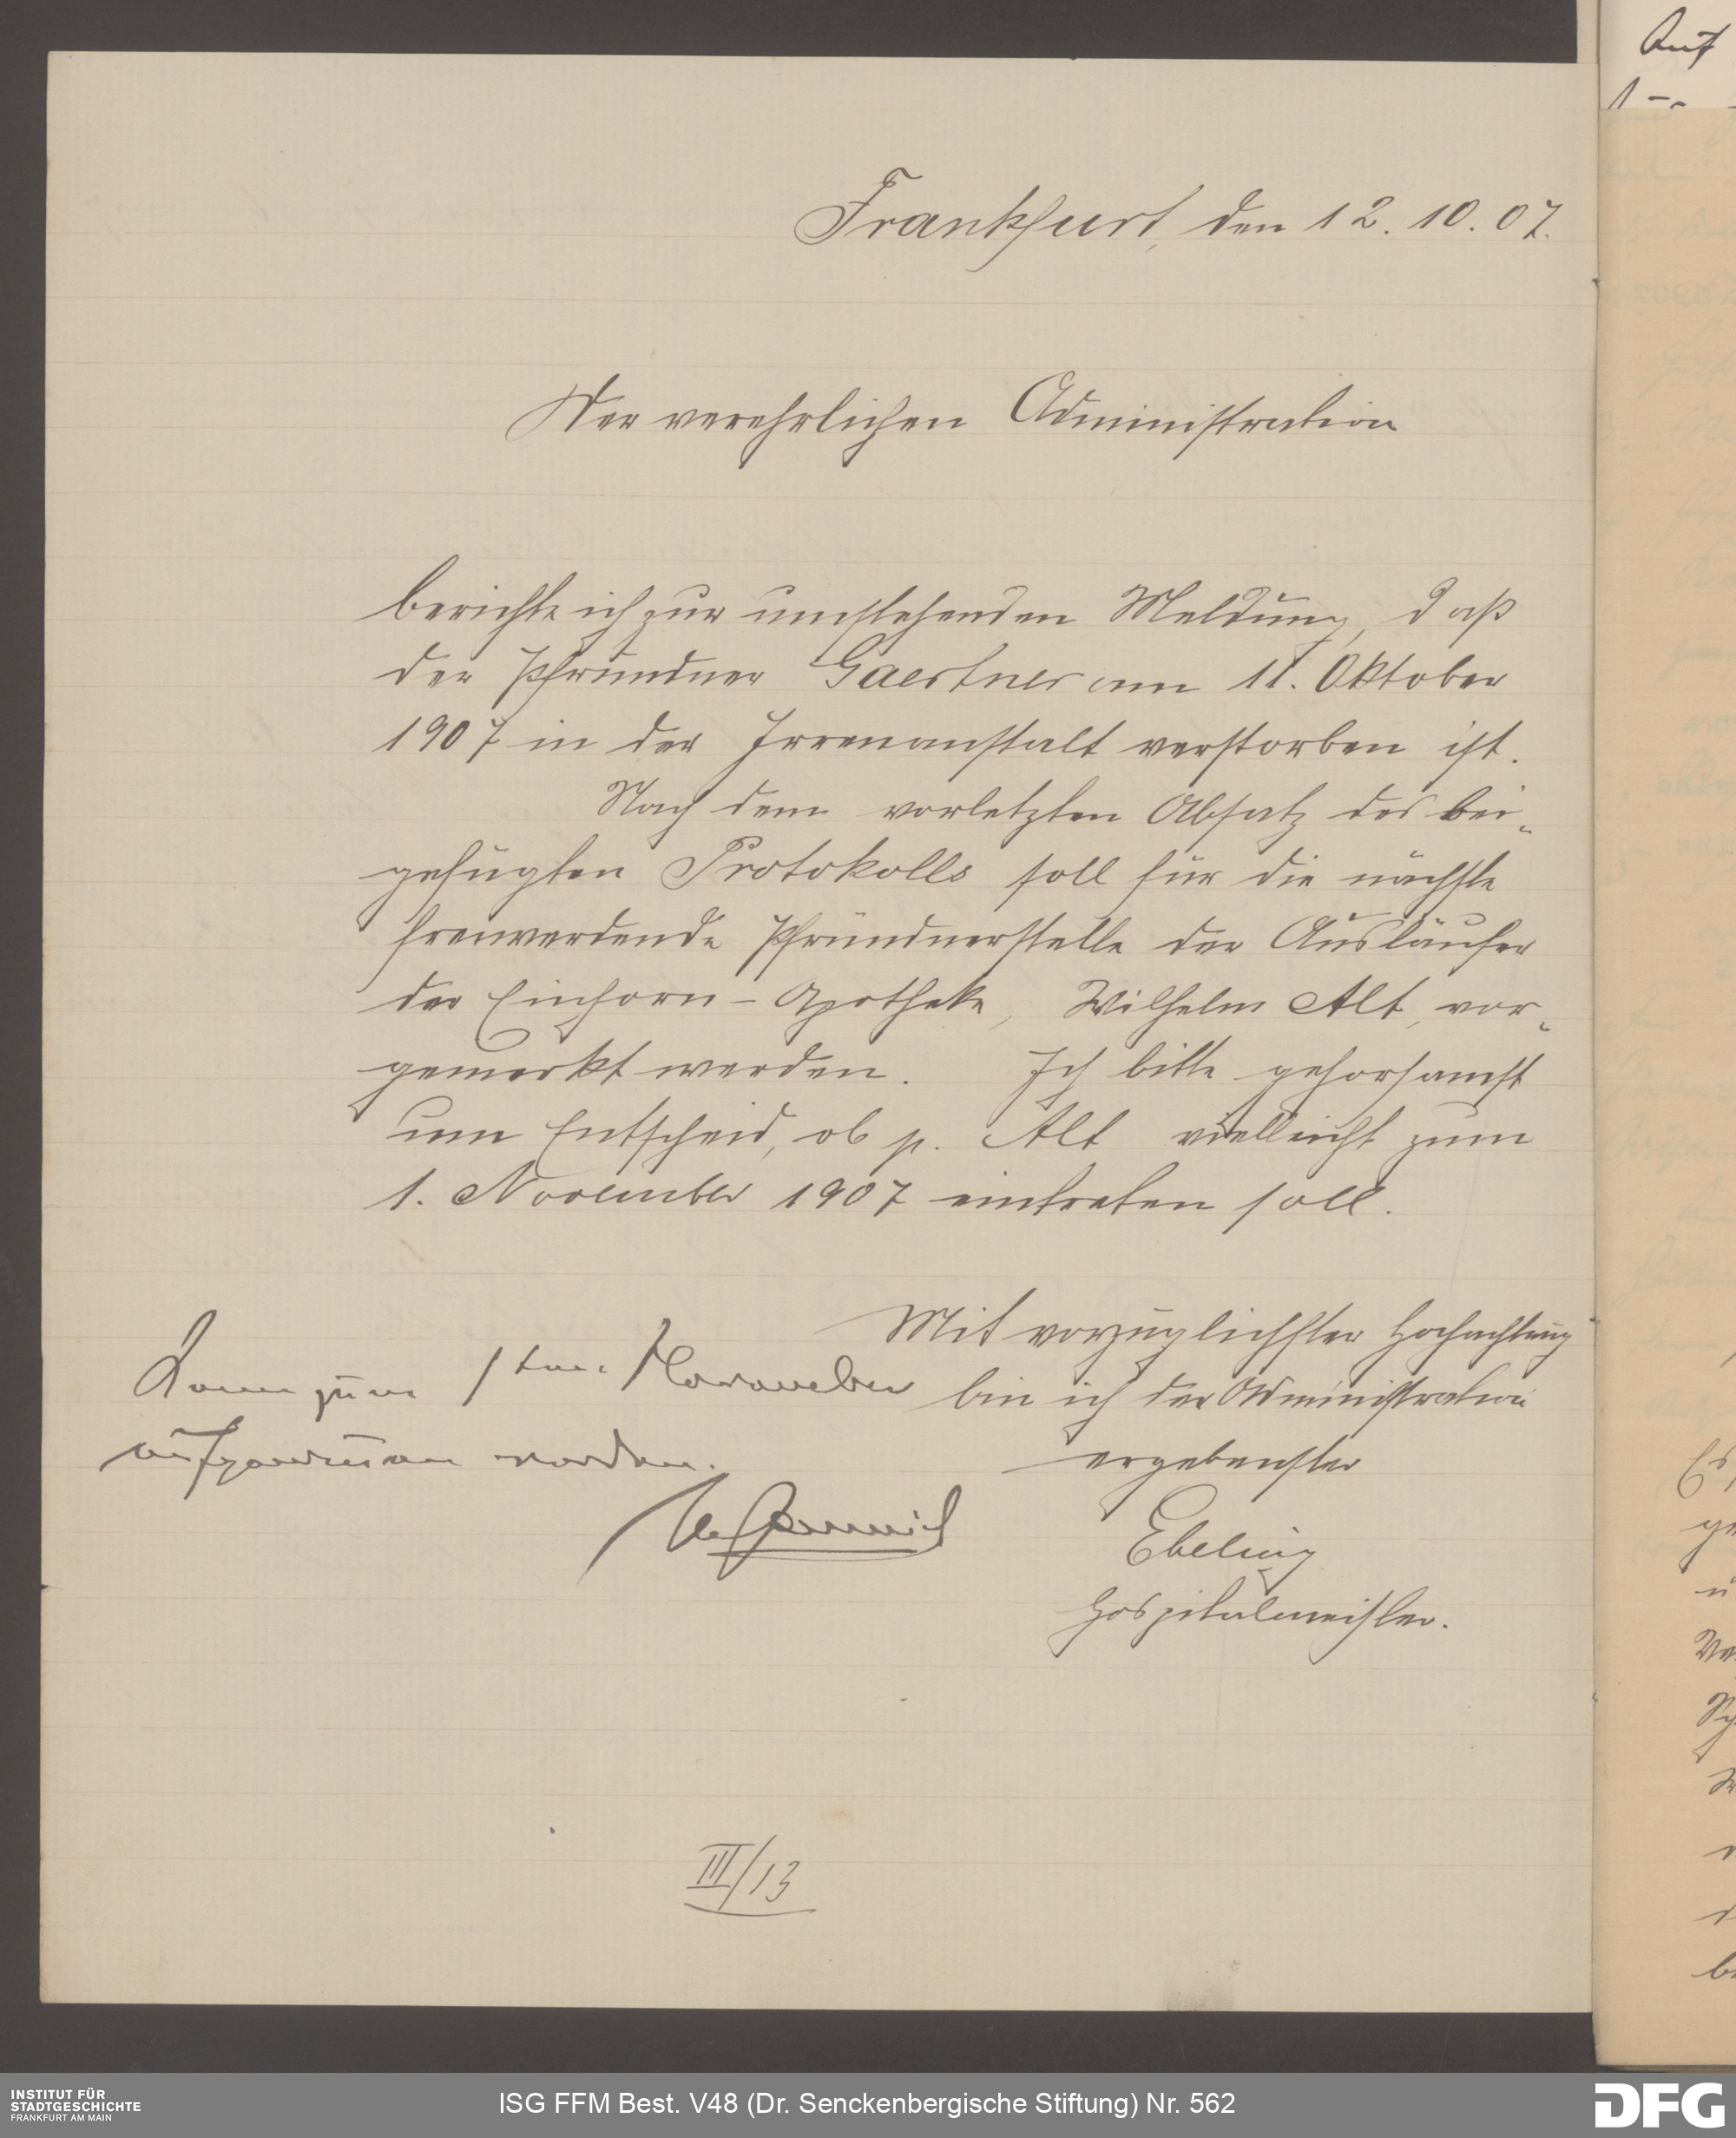 Frankfurt, den 12. 10. 07.
Der verehrlichen Administration
berichte ich zur umstehenden Meldung, daß
der Pfründner Gaertner am 11. Oktober
1907 in der Irrenanstalt verstorben ist.
Nach dem vorletzten Absatz des bei-
gefügten Protokolls soll für die nächste
freiwerdende Pfründnerstelle der Ausläufer
der Einhorn-Apotheke, Wilhelm Alt, vor-
gemerkt werden. Ich bitte gehorsamst
um Entscheid, ob p. Alt vielleicht zum
1. November 1907 eintreten soll.
Mit vorzüglichster Hochachtung
bin ich der Administration
ergebenster
Ebeling
Hospitalmeister.
Kann zum 1ten November
aufgenommen werden.
III/13
Auf
INSTITUT FÜR
STADTGESCHICHTE
FRANKFURT AM MAIN
ISG FFM Best. V48 (Dr. Senckenbergische Stiftung) Nr. 562
DFG